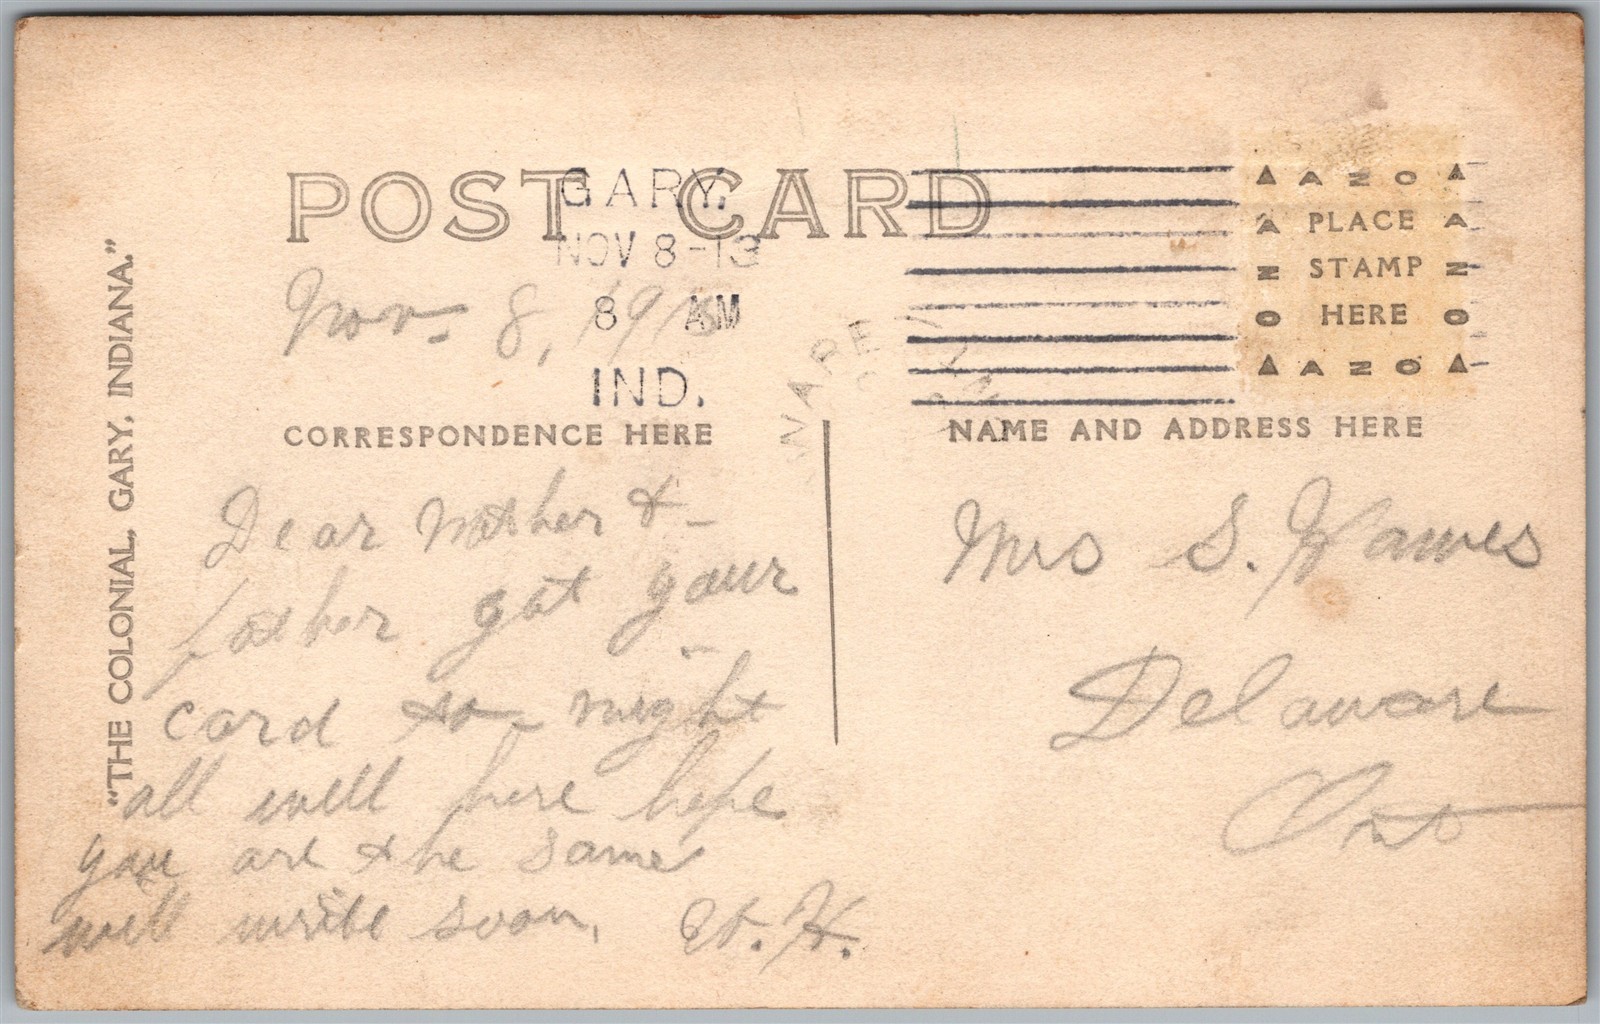 POST CARD
GARY.
NOV 8-13
8 AM
IND.
Nov. 8, 1913
"THE COLONIAL, GARY, INDIANA."
CORRESPONDENCE HERE
Dear Mother &
father got your
card to-night
all well here hope
you are the same
will write soon.
NAME AND ADDRESS HERE
Mrs S.
Delaware
Ont
AZO
PLACE
STAMP
HERE
AZO